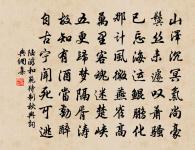 山澤沉冥氣尚豪
鬢絲未遽嘆蕭騷
已忘海運鯤鵬化
那計風微燕雀高
萬里客魂迷楚峽
五更歸夢隔胥濤
故知有酒當勤醉
自古寧聞死可逃
陸游和范待制秋興詞
典網集